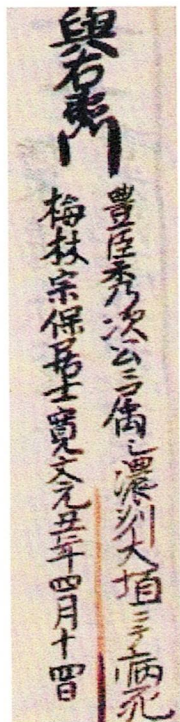 與右衛門
豊臣秀次公ニ属シ濃州大垣ニテ病死
梅林宗保居士寛文元丑年四月十四日